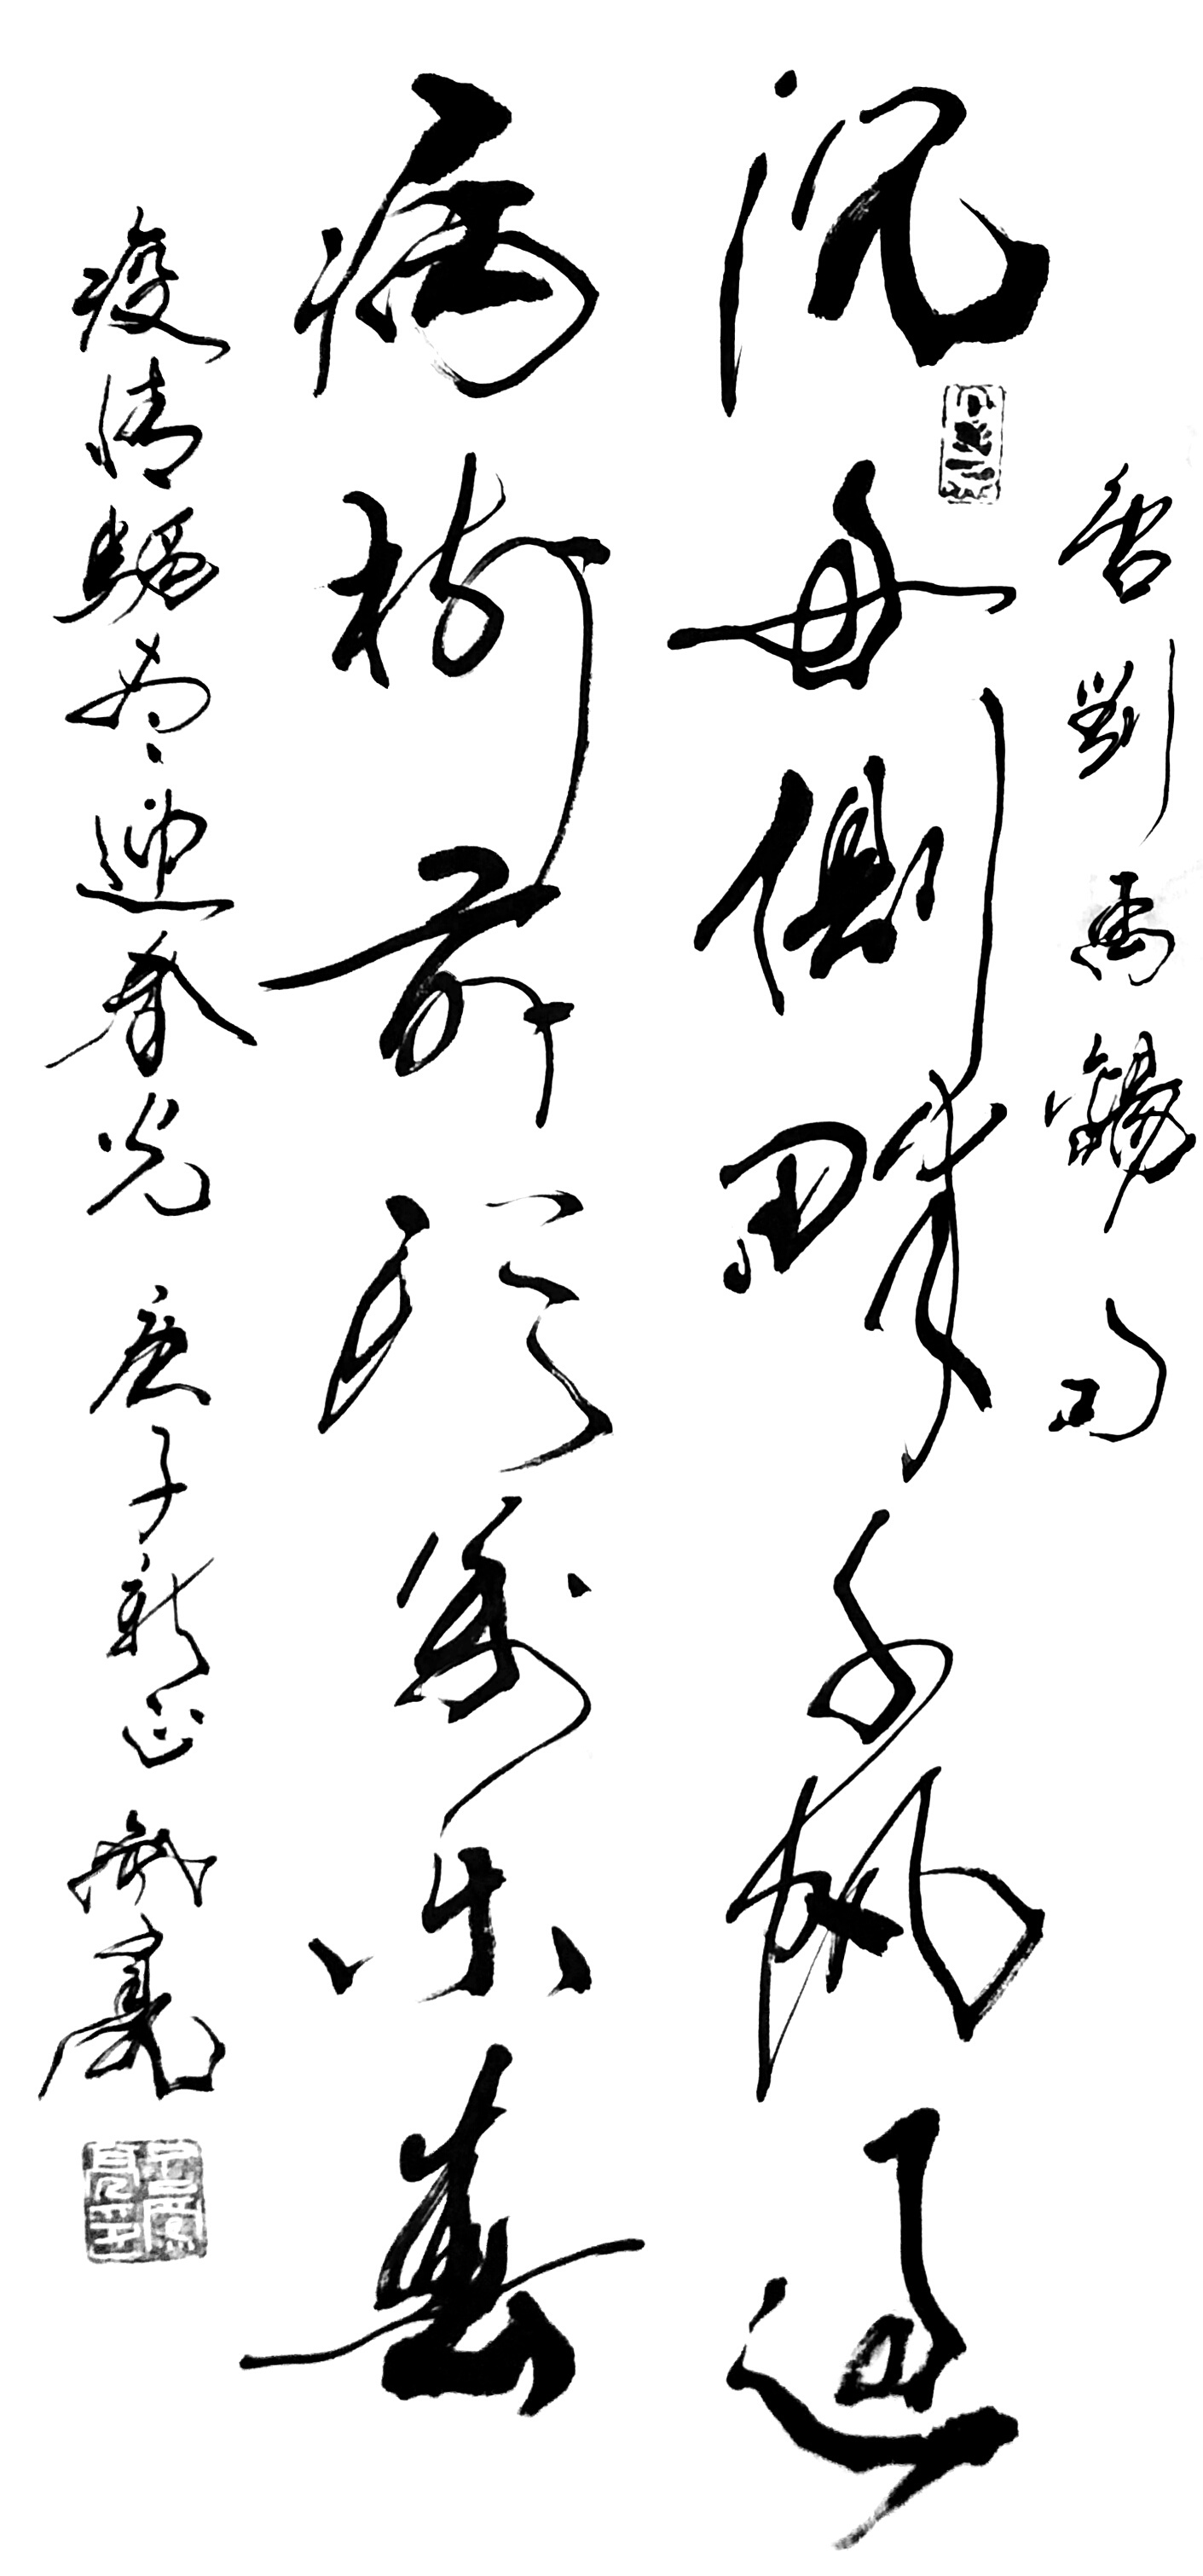 唐刘禹锡句
沉舟侧畔千帆过
病树前头万木春
疫情驱尽迎春光 庚子新正